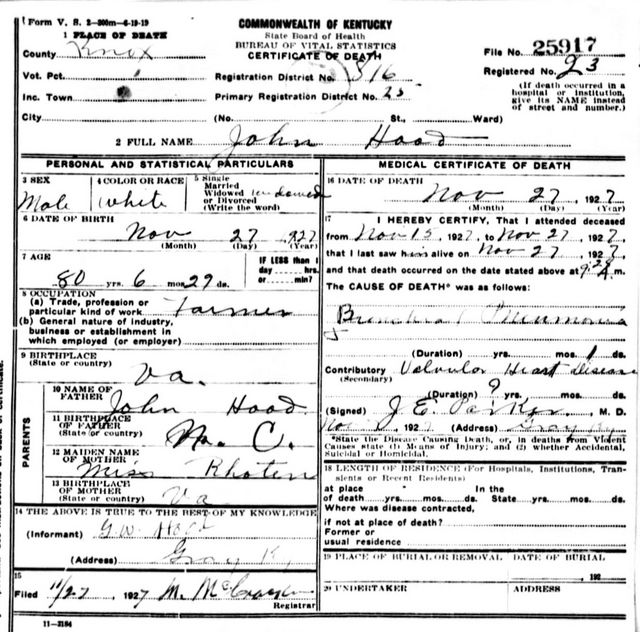 Form V. S. 2-300m-6-19-19
COMMONWEALTH OF KENTUCKY
State Board of Health
BUREAU OF VITAL STATISTICS
CERTIFICATE OF DEATH
1 PLACE OF DEATH
County Knox
File No. 25917
Vot. Pct.
Registration District No. 816
Registered No. 23
Inc. Town
Primary Registration District No. 25
(If death occurred in a hospital or institution, give its NAME instead of street and number.)
City (No. St., Ward)
2 FULL NAME John Hood
PERSONAL AND STATISTICAL PARTICULARS
3 SEX
Male
4 COLOR OR RACE
White
5 Single
Married
Widowed widowed
or Divorced
(Write the word)
6 DATE OF BIRTH
Nov 27 1927
(Month) (Day) (Year)
7 AGE
80 yrs. 6 mos. 29 ds.
IF LESS than 1
day hrs.
or min?
8 OCCUPATION
(a) Trade, profession or
particular kind of work Farmer
(b) General nature of industry,
business or establishment in
which employed (or employer)
9 BIRTHPLACE
(State or country)
Va.
PARENTS
10 NAME OF
FATHER
John Hood
11 BIRTHPLACE
OF FATHER
(State or country)
No. C.
12 MAIDEN NAME
OF MOTHER
Miss Rhoten
13 BIRTHPLACE
OF MOTHER
(State or country)
Va
14 THE ABOVE IS TRUE TO THE BEST OF MY KNOWLEDGE
(Informant) G.W. Hood
(Address) Gray Ky
15
Filed 11/27 1927 M. McCraysen
Registrar
11-3184
MEDICAL CERTIFICATE OF DEATH
16 DATE OF DEATH
Nov 27 1927
(Month) (Day) (Year)
17 I HEREBY CERTIFY, That I attended deceased
from Nov 15, 1927, to Nov 27, 1927,
that I last saw him alive on Nov 27, 1927,
and that death occurred on the date stated above at
The CAUSE OF DEATH* was as follows:
Bronchial Pneumonia
(Duration) yrs. mos. ds.
Contributory Valvular Heart Disease
(Secondary)
(Duration) ? yrs. mos. ds.
(Signed) J. E. Parker, M. D.
1927 (Address) Gray Ky
*State the Disease Causing Death, or, in deaths from Violent
Causes state (1) Means of Injury; and (2) whether Accidental,
Suicidal or Homicidal.
18 LENGTH OF RESIDENCE (For Hospitals, Institutions, Transients or Recent Residents)
at place In the
of death yrs. mos. ds. State yrs. mos. ds.
Where was disease contracted,
if not at place of death?
Former or
usual residence
19 PLACE OF BURIAL OR REMOVAL DATE OF BURIAL
192
20 UNDERTAKER ADDRESS